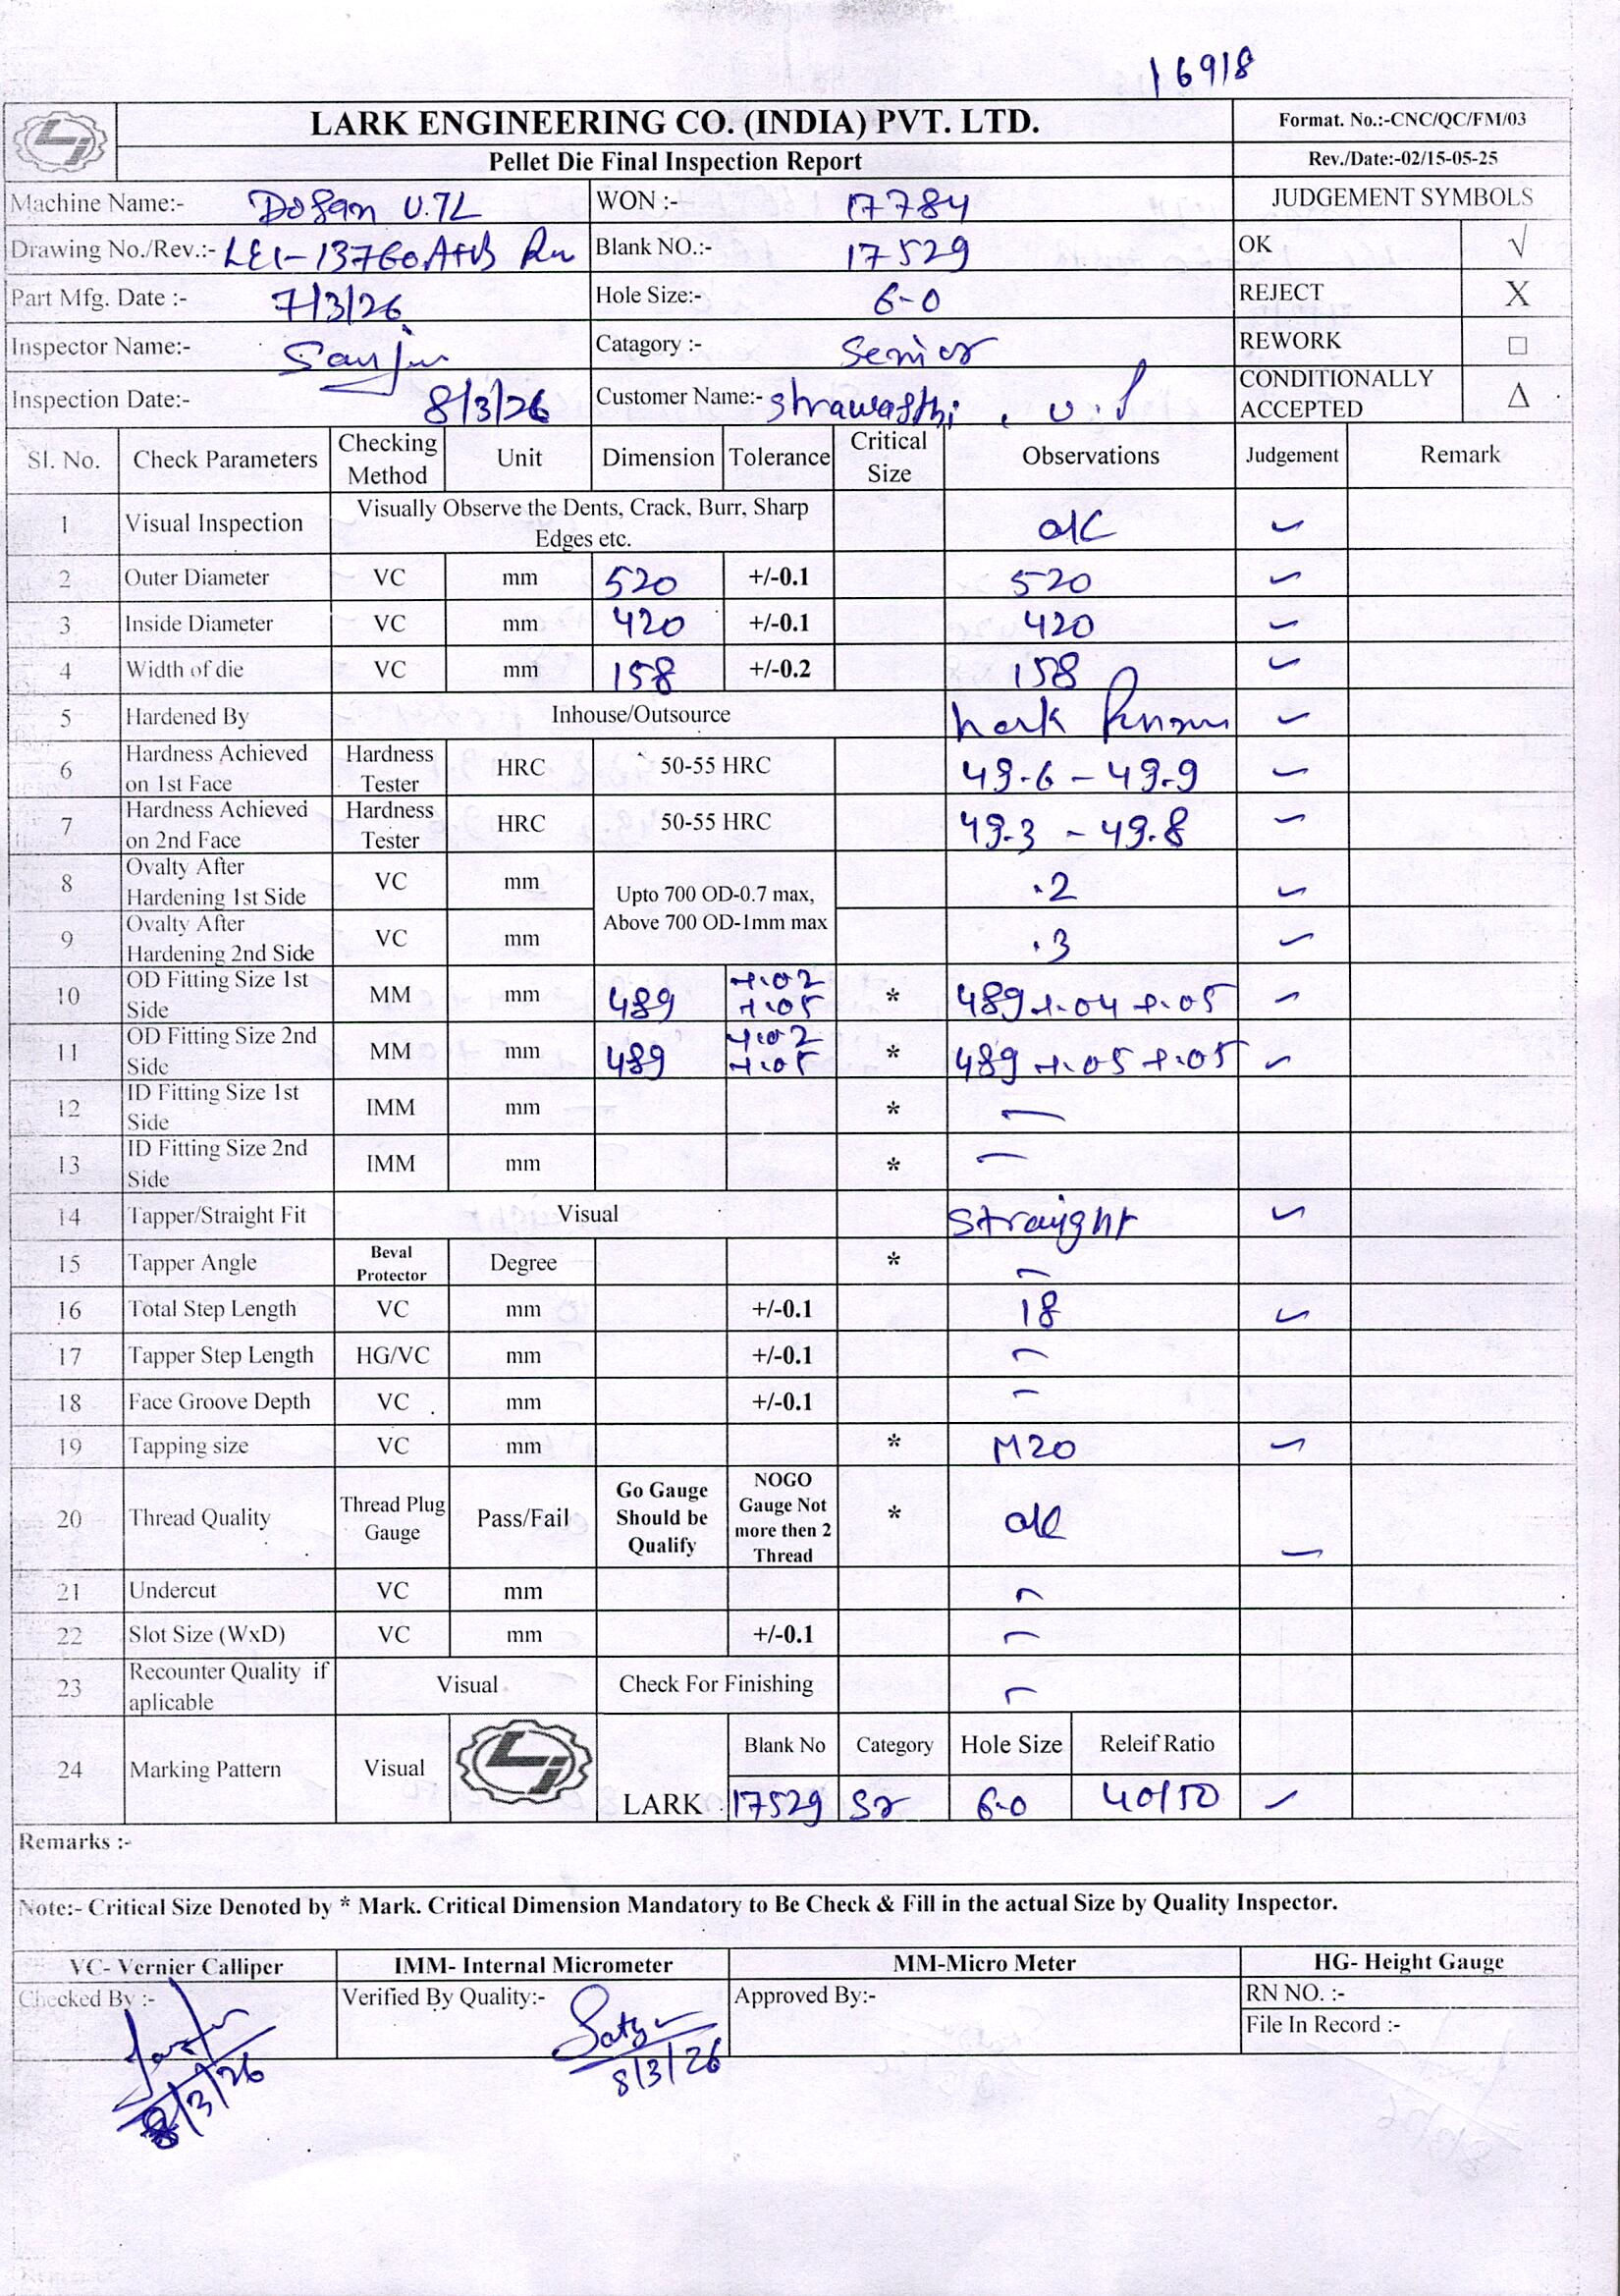 16918
LARK ENGINEERING CO. (INDIA) PVT. LTD.
Format. No.:-CNC/QC/FM/03
Pellet Die Final Inspection Report
Rev./Date:-02/15-05-25
Machine Name:- U.TL WON :- 17784 JUDGEMENT SYMBOLS
Drawing No./Rev.:- LEI-13760.A+B Blank NO.:- 17529 OK √
Part Mfg. Date :- 7/3/26 Hole Size:- 6-0 REJECT X
Inspector Name:- Sanju Catagory :- Senior REWORK □
Inspection Date:- 8/3/26 Customer Name:- Shrawasthi, CONDITIONALLY ACCEPTED Δ
Sl. No. Check Parameters Checking Method Unit Dimension Tolerance Critical Size Observations Judgement Remark
1 Visual Inspection Visually Observe the Dents, Crack, Burr, Sharp Edges etc. OK ✓
2 Outer Diameter VC mm 520 +/-0.1 520 ✓
3 Inside Diameter VC mm 420 +/-0.1 420 ✓
4 Width of die VC mm 158 +/-0.2 158 ✓
5 Hardened By Inhouse/Outsource Lark ✓
6 Hardness Achieved on 1st Face Hardness Tester HRC 50-55 HRC 49.6 - 49.9 ✓
7 Hardness Achieved on 2nd Face Hardness Tester HRC 50-55 HRC 49.3 - 49.8 ✓
8 Ovalty After Hardening 1st Side VC mm Upto 700 OD-0.7 max, Above 700 OD-1mm max .2 ✓
9 Ovalty After Hardening 2nd Side VC mm .3 ✓
10 OD Fitting Size 1st Side MM mm 489 +.02 +.05 * 489 +.04 +.05 ✓
11 OD Fitting Size 2nd Side MM mm 489 +.02 +.05 * 489 +.05 +.05 ✓
12 ID Fitting Size 1st Side IMM mm * —
13 ID Fitting Size 2nd Side IMM mm * —
14 Tapper/Straight Fit Visual Straight ✓
15 Tapper Angle Beval Protector Degree * —
16 Total Step Length VC mm +/-0.1 18 ✓
17 Tapper Step Length HG/VC mm +/-0.1 —
18 Face Groove Depth VC mm +/-0.1 —
19 Tapping size VC mm * M20 ✓
20 Thread Quality Thread Plug Gauge Pass/Fail Go Gauge Should be Qualify NOGO Gauge Not more then 2 Thread * OK ✓
21 Undercut VC mm —
22 Slot Size (WxD) VC mm +/-0.1 —
23 Recounter Quality if aplicable Visual Check For Finishing —
24 Marking Pattern Visual LARK Blank No Category Hole Size Releif Ratio
17529 Sr 6-0 40/50 ✓
Remarks :-
Note:- Critical Size Denoted by * Mark. Critical Dimension Mandatory to Be Check & Fill in the actual Size by Quality Inspector.
VC- Vernier Calliper IMM- Internal Micrometer MM-Micro Meter HG- Height Gauge
Checked By :- Verified By Quality:- Approved By:- RN NO. :-
File In Record :-
8/3/26 8/3/26